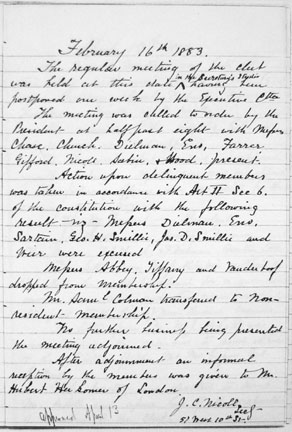 February 16th 1883.
The regular meeting of the club
was held at this date in the Secretary's Studio having been
postponed one week by the Executive Ctee
The meeting was called to order by the
President at half past eight with Messrs
Chase, Church, Dielman, Eno, Farrer,
Gifford, Nicoll, Sabin, & Wood, present.
Action upon delinquent members
was taken in accordance with Art II Sec 6.
of the constitution with the following
result – viz – Messrs Dielman, Eno,
Sartain, Geo. H. Smillie, Jas. D. Smillie and
Weir were excused
Messrs Abbey, Tiffany and Vanderhoof
dropped from membership.
Mr. Saml Colman transferred to Non-
resident membership.
No further business being presented
the meeting adjourned.
After adjournment an informal
reception by the members was given to Mr.
Hubert Herkomer of London
J. C. Nicoll
Secy
51 West 10th St
approved April 13